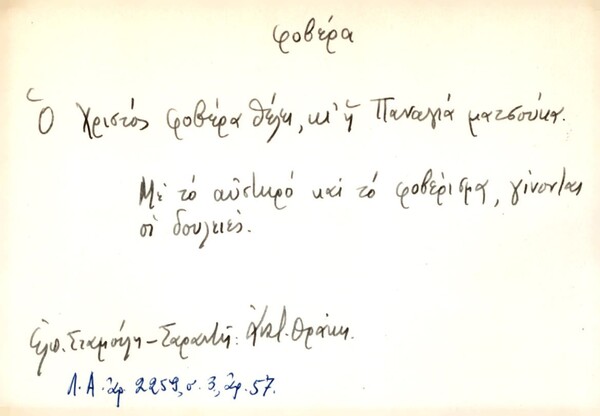 φοβέρα
Ὁ Χριστός φοβέρα θέλει, κι' ἡ Παναγιά ματσούκα.
Μέ τό αὐστηρό καί τό φοβέρισμα, γίνονται
οἱ δουλειές.
Ἐλπ. Σταμούλη - Σαραντῆ: Ἀνατ. Θράκη.
Λ.Α. ἀρ. 2259, σ. 3, ἀρ. 57.